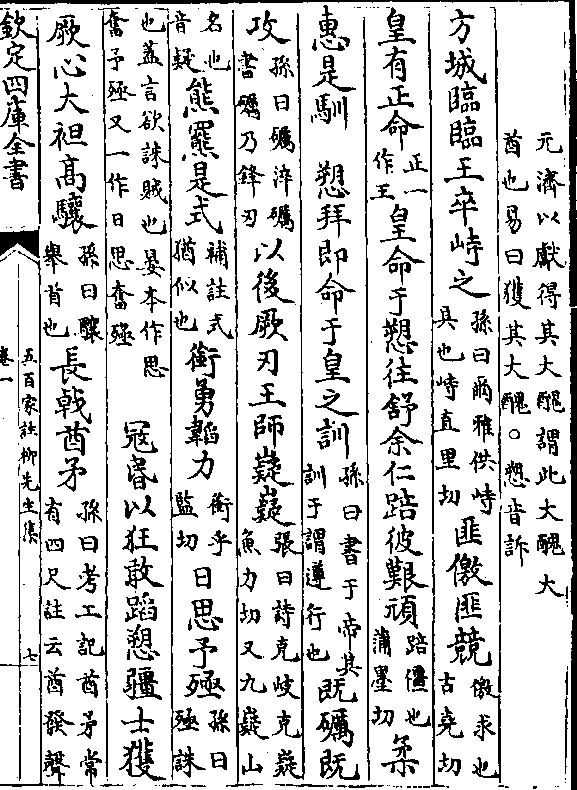 元濟以獻得其大醜謂此大醜大
酋也易曰獲其大醜○愬音訴
方城臨臨王卒峙之孫曰爾雅供峙具也峙直里切匪儌匪競儌求也古堯切
皇有正命正一作王皇命于愬往舒余仁踣彼艱頑踣僵也蒲墨切柔
惠是馴　愬拜即命于皇之訓孫曰書于帝其訓于謂遵行也既礪既
攻孫曰礪淬礪書礪乃鋒刃以後厥刃王師嶷嶷張曰詩克岐克嶷魚力切又九嶷山
名也音疑熊羆是式補註式猶似也銜勇韜力銜乎監切日思予殛孫曰殛誅
也蓋言欲誅賊也晏本作思奮予殛又一作日思奮殛　寇昏以狂敢蹈愬疆士獲
厥心大袒高驤孫曰驤舉首也長戟酋矛孫曰考工記酋矛常有四尺註云酋發聲
欽定四庫全書
五百家註柳先生集
卷一
七